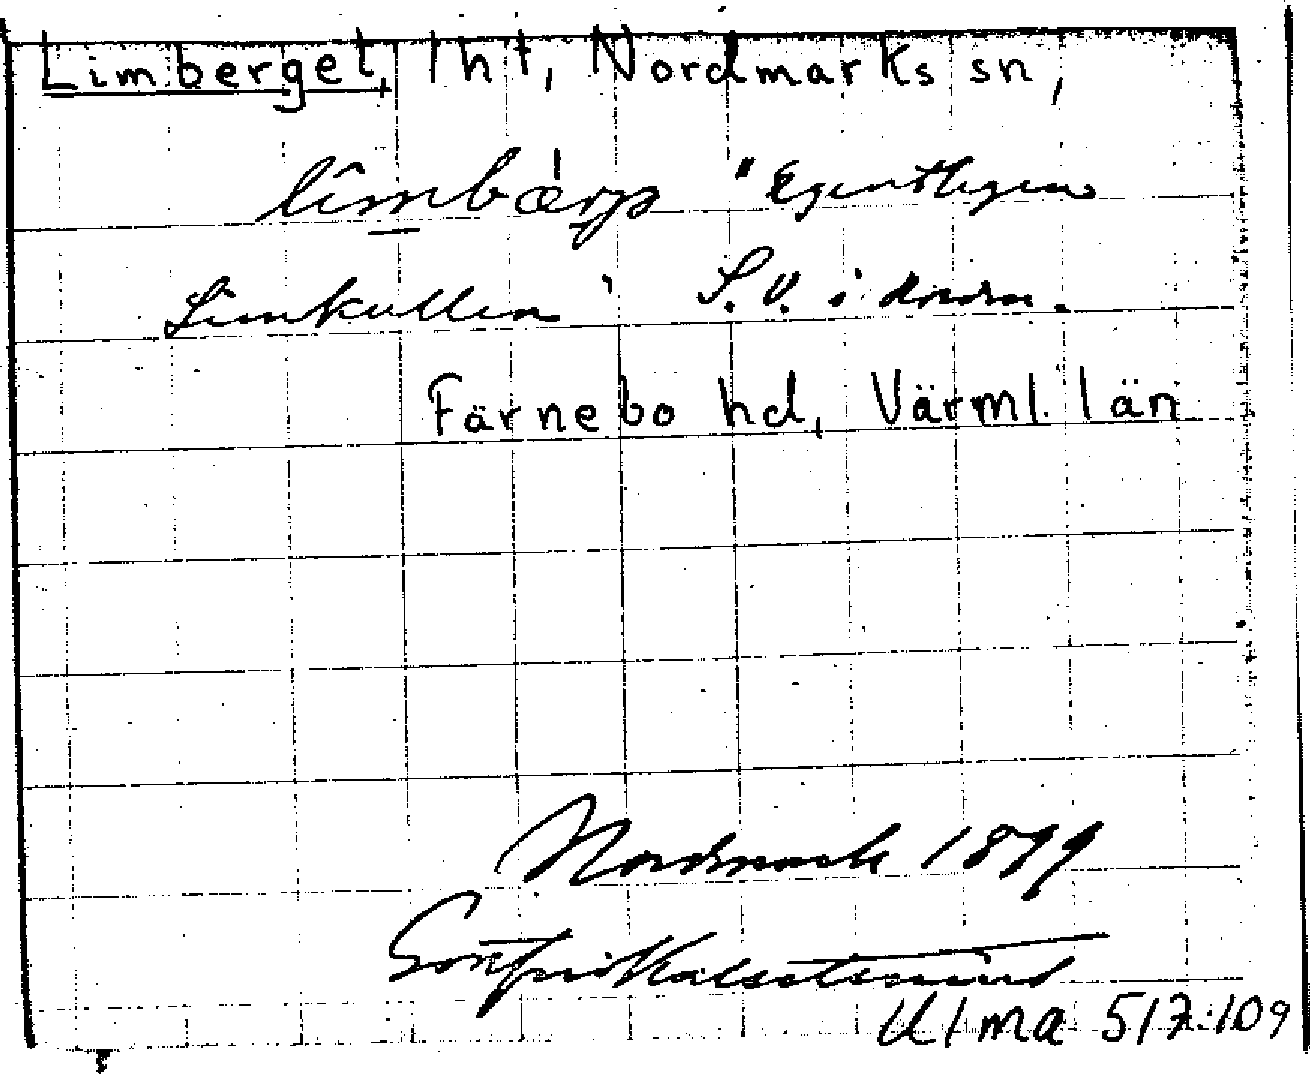 Limberget, lht, Nordmarks sn,
limbärg "Egentligen
Limkullen" S.V. i socknen.
Färnebo hd, Värml. län
Nordmark 1879
Gottfrid Kallstenius
Ulma 517:109